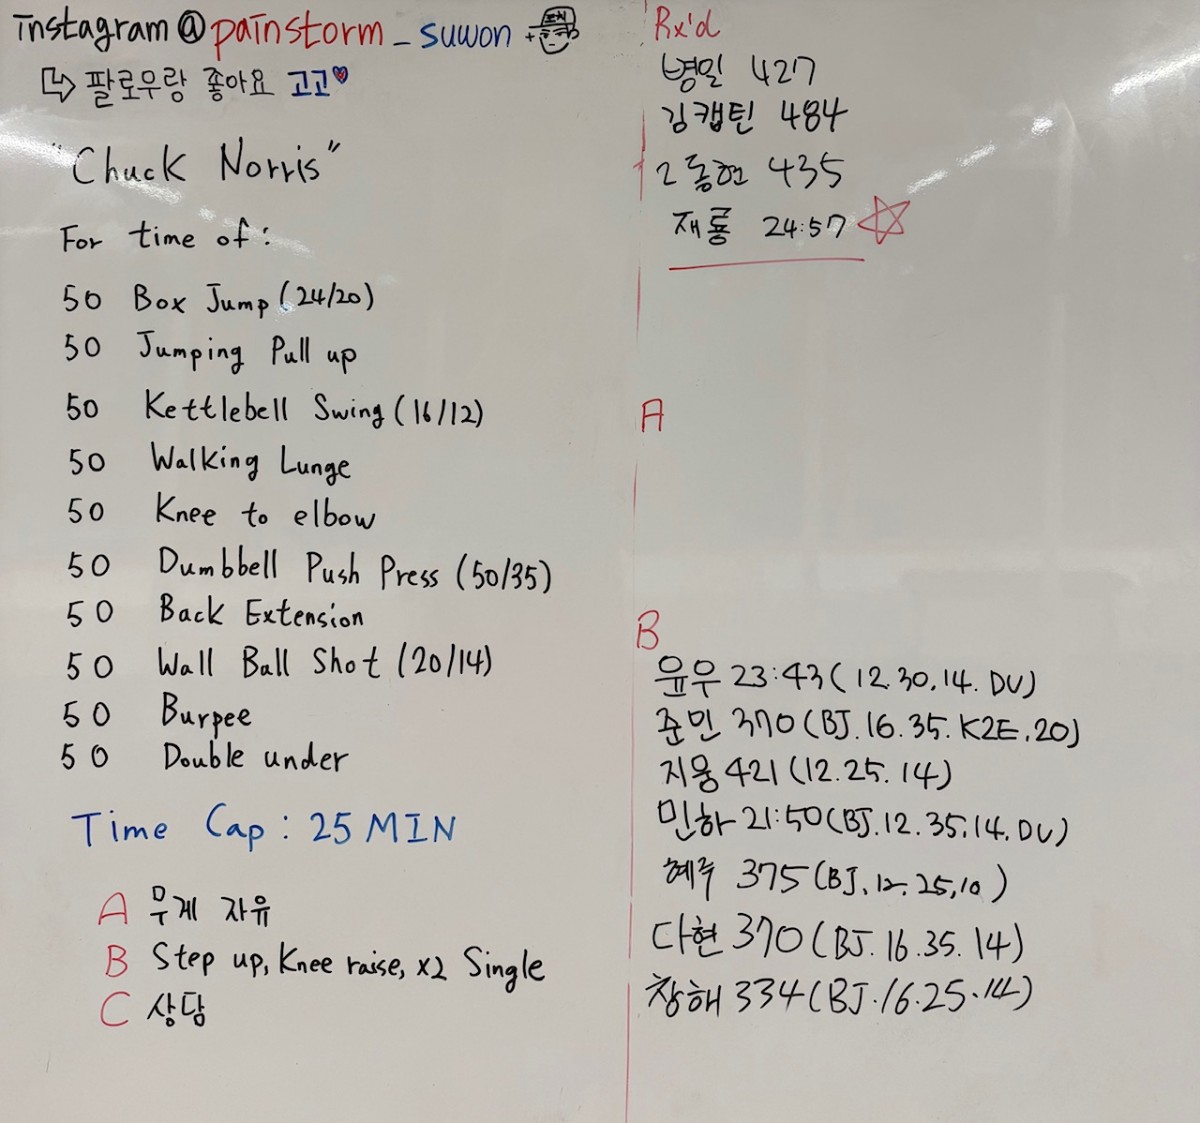 instagram@painstorm_suwon
팔로우랑 좋아요 고고
"Chuck Norris"
For time of:
50 Box Jump (24/20)
50 Jumping Pull up
50 Kettlebell Swing (16/12)
50 Walking Lunge
50 Knee to elbow
50 Dumbbell Push Press (50/35)
50 Back Extension
50 Wall Ball Shot (20/14)
50 Burpee
50 Double under
Time Cap: 25 MIN
A 무게 자유
B Step up, Knee raise, x2 Single
C 상담
Rx'd
병일 427
김캡틴 484
2동현 435
재룡 24:57
A
B
윤우 23:43 (12.30.14. DU)
준민 370 (BJ.16.35.K2E.20)
지웅 421 (12.25.14)
민하 21:50 (BJ.12.35.14.DU)
혜주 375 (BJ.12.25.10)
다현 370 (BJ.16.35.14)
창해 334 (BJ.16.25.14)